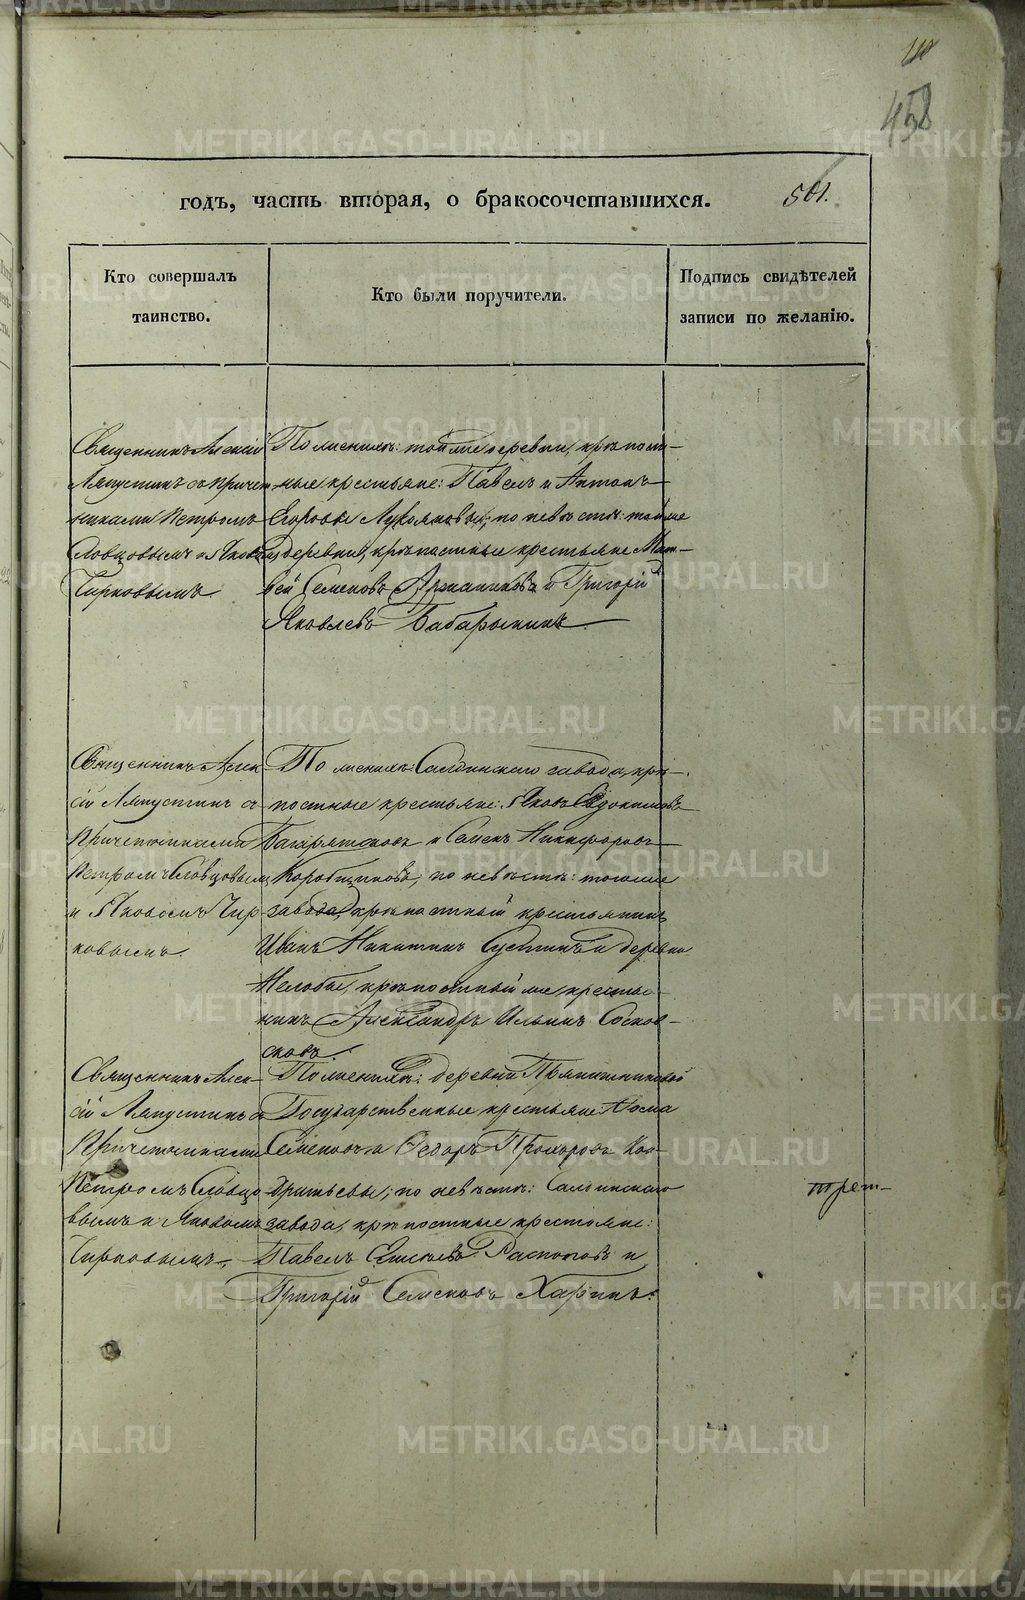 458
501.
годъ, часть вторая, о бракосочетавшихся.
Кто совершалъ таинство.
Кто были поручители.
Подпись свидѣтелей записи по желанію.
Священникъ Алексій
Ляпустинъ съ причет
никами Петромъ
Словцовымъ и Яковомъ
Чирковымъ
По женихѣ: тойже деревни, крѣпост-
ные крестьяне: Павелъ и Антонъ
Егоровы Лукояновы; по невѣстѣ: тойже
деревни, крѣпостные крестьяне Мат-
вей Семеновъ и Григорій
Яковлевъ Бабарыкинъ
Священникъ Алек-
сій Ляпустинъ съ
Причетниками
Петромъ Словцовымъ
и Яковомъ Чир
ковымъ.
По женихѣ: Салдинскаго завода, крѣ-
постные крестьяне: Яковъ Евдокимовъ
и Семенъ Никифоровъ
Коробщиковъ; по невѣстѣ: тогоже
завода, крѣпостный крестьянинъ
Иванъ Никитинъ и деревни
Нелобы, крѣпостный же, крестья-
нинъ Александръ Ильинъ Соснов-
сковъ.
Священникъ Алек-
сій Ляпустинъ съ
Причетниками
Петромъ Словцо
вымъ и Яковомъ
Чирковымъ.
По женихѣ: деревни Прянишниковой
Государственные крестьяне: Козма
Семеновъ и Федоръ Прохоровъ Кон-
дратьевы; по невѣстѣ: Салдинскаго
завода, крѣпостные крестьяне:
Павелъ Распоповъ и
Григорій Семеновъ Харинъ.
трет-
METRIKI.GASO-URAL.RU